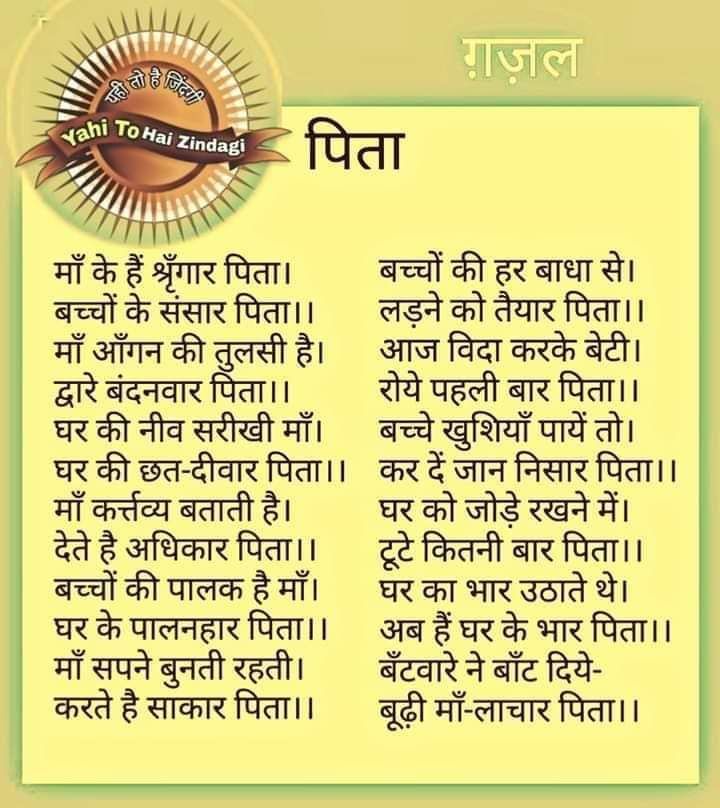 यही तो है जिंदगी
Yahi To Hai Zindagi
ग़ज़ल
पिता
माँ के हैं श्रृँगार पिता।
बच्चों के संसार पिता।।
माँ आँगन की तुलसी है।
द्वारे बंदनवार पिता।।
घर की नीव सरीखी माँ।
घर की छत-दीवार पिता।।
माँ कर्त्तव्य बताती है।
देते है अधिकार पिता।।
बच्चों की पालक है माँ।
घर के पालनहार पिता।।
माँ सपने बुनती रहती।
करते है साकार पिता।।
बच्चों की हर बाधा से।
लड़ने को तैयार पिता।।
आज विदा करके बेटी।
रोये पहली बार पिता।।
बच्चे खुशियाँ पायें तो।
कर दें जान निसार पिता।।
घर को जोड़े रखने में।
टूटे कितनी बार पिता।।
घर का भार उठाते थे।
अब हैं घर के भार पिता।।
बँटवारे ने बाँट दिये-
बूढ़ी माँ-लाचार पिता।।